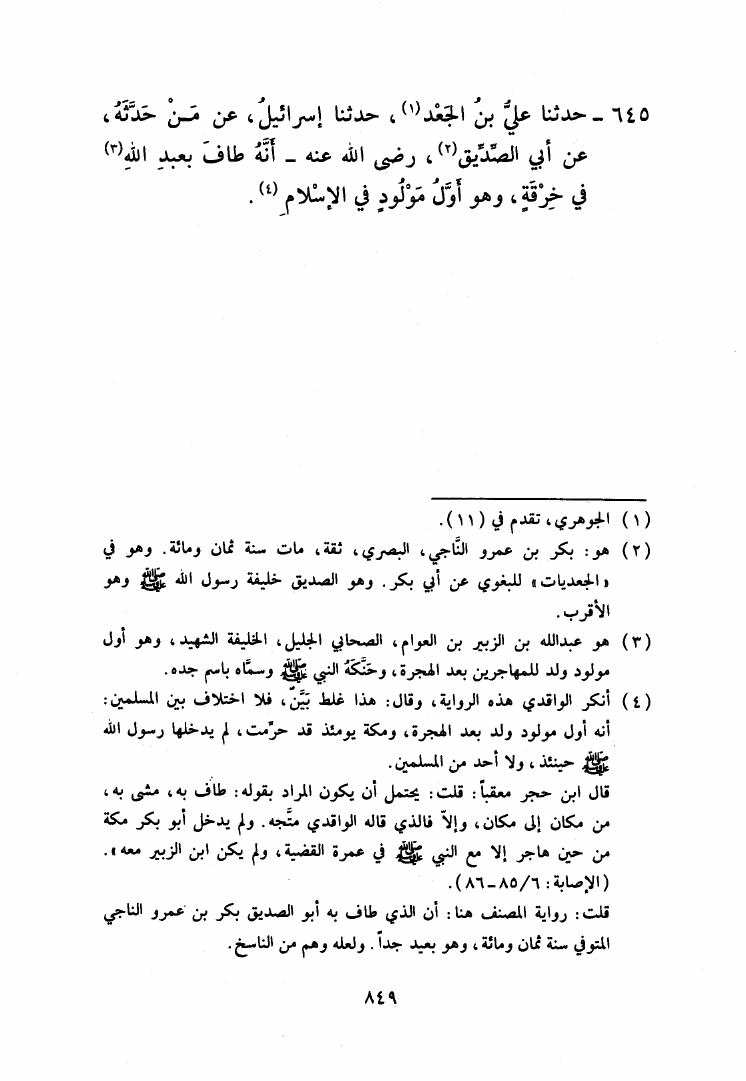 ٦٤٥ ـ حدثنا عليُّ بنُ الجَعْد(١)، حدثنا إسرائيلُ، عن مَـنْ حَدَّثَهُ،
عن أبي الصِّدِّيق(٢)، رضى الله عنه ـ أنَّهُ طافَ بعبدِ اللهِ(٣)
في خِرْقَةٍ، وهو أوَّلُ مَوْلُودٍ في الإسْلامِ(٤).
(١) الجوهري، تقدم في (١١).
(٢) هو: بكر بن عمرو النَّاجي، البصري، ثقة، مات سنة ثمان ومائة. وهو في
«الجعديات» للبغوي عن أبي بكر. وهو الصديق خليفة رسول الله ﷺ وهو
الأقرب.
(٣) هو عبدالله بن الزبير بن العوام، الصحابي الجليل، الخليفة الشهيد، وهو أول
مولود ولد للمهاجرين بعد الهجرة، وحَنَّكَهُ النبي ﷺ وسمَّاه باسم جده.
(٤) أنكر الواقدي هذه الرواية، وقال: هذا غلط بَيِّنٌ، فلا اختلاف بين المسلمين:
أنه أول مولود ولد بعد الهجرة، ومكة يومئذ قد حرِّمت، لم يدخلها رسول الله
ﷺ حينئذ، ولا أحد من المسلمين.
قال ابن حجر معقباً: قلت: يحتمل أن يكون المراد بقوله: طاف به، مشى به،
من مكان إلى مكان، وإلاّ فالذي قاله الواقدي متَّجه. ولم يدخل أبو بكر مكة
من حين هاجر إلا مع النبي ﷺ في عمرة القضية، ولم يكن ابن الزبير معه».
(الإصابة: ٨٥/٦ـ٨٦).
قلت: رواية المصنف هنا: أن الذي طاف به أبو الصديق بكر بن عمرو الناجي
المتوفي سنة ثمان ومائة، وهو بعيد جداً. ولعله وهم من الناسخ.
٨٤٩